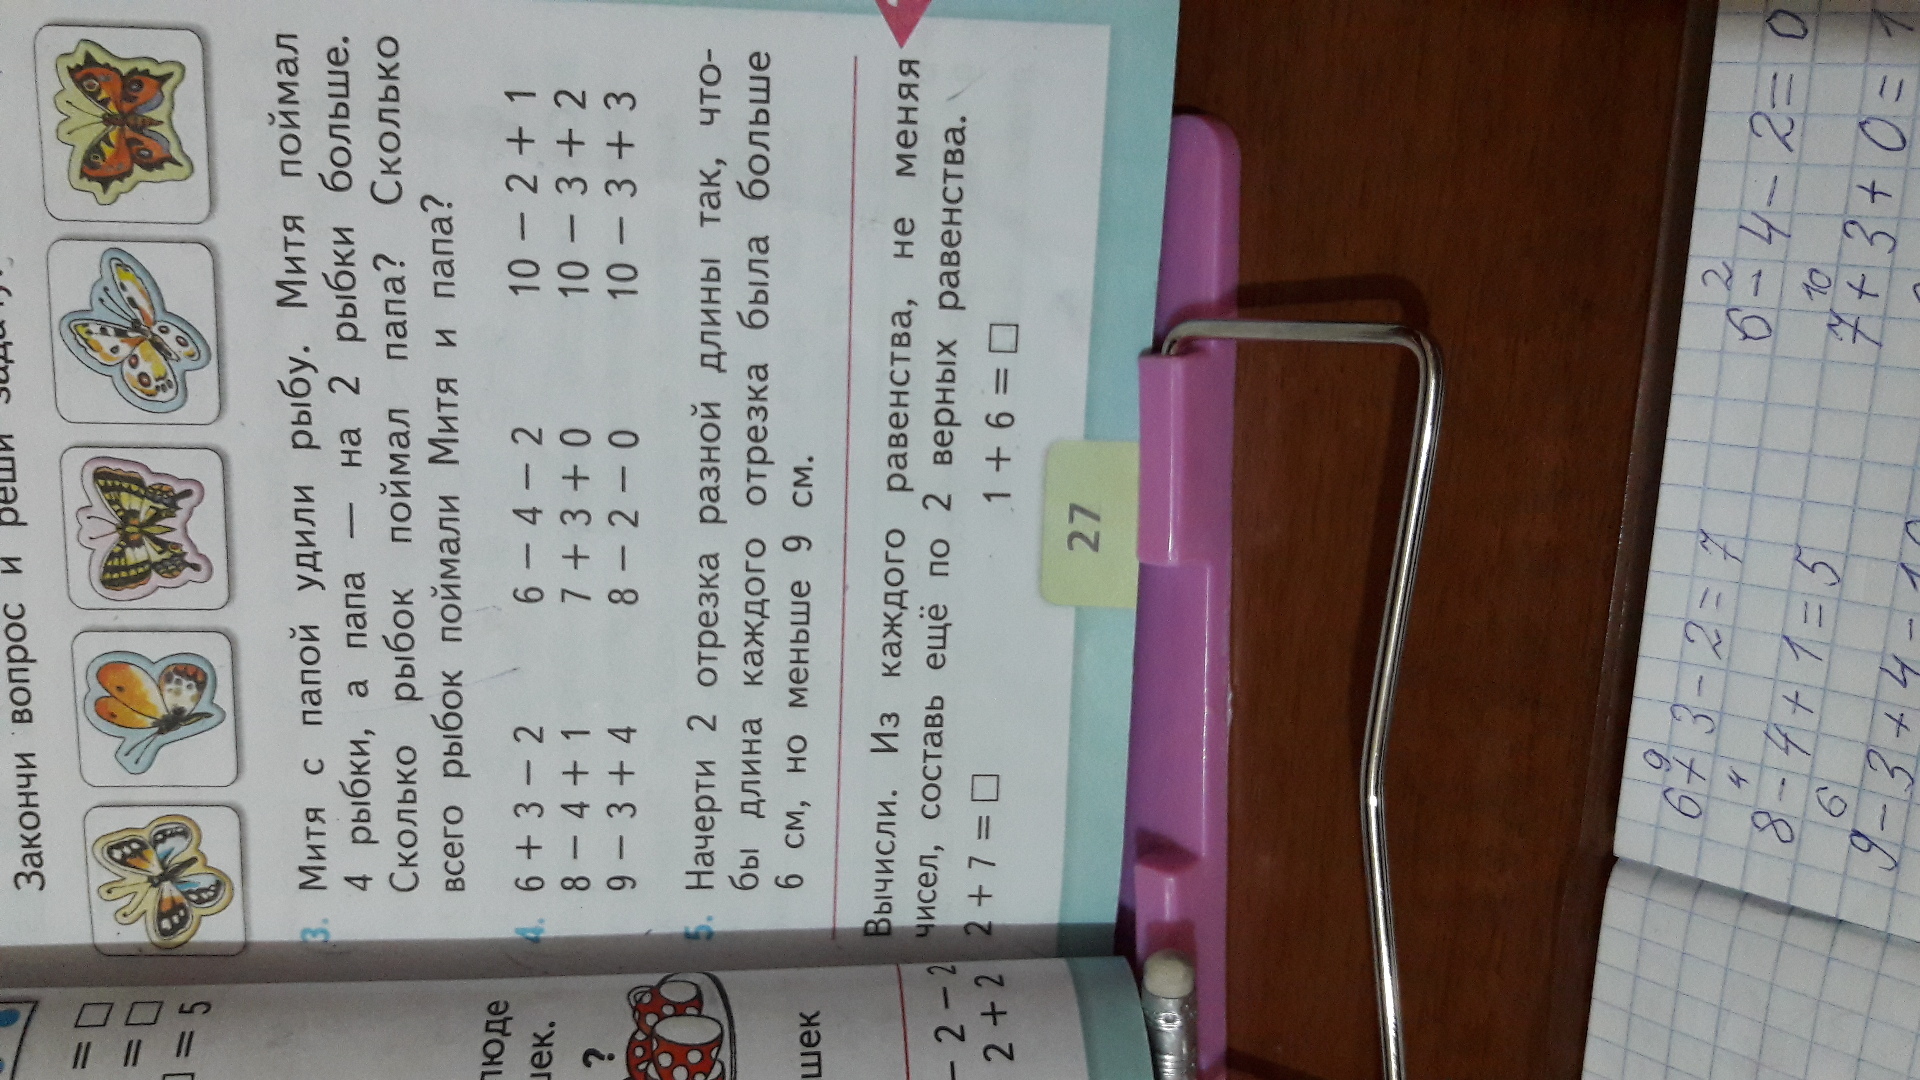 Закончи вопрос и реши
3. Митя с папой удили рыбу. Митя поймал
4 рыбки, а папа — на 2 рыбки больше.
Сколько рыбок поймал папа? Сколько
всего рыбок поймали Митя и папа?
4. 6 + 3 − 2 6 − 4 − 2 10 − 2 + 1
8 − 4 + 1 7 + 3 + 0 10 − 3 + 2
9 − 3 + 4 8 − 2 − 0 10 − 3 + 3
5. Начерти 2 отрезка разной длины так, что-
бы длина каждого отрезка была больше
6 см, но меньше 9 см.
Вычисли. Из каждого равенства, не меняя
чисел, составь ещё по 2 верных равенства.
2 + 7 = □ 1 + 6 = □
27
= □
= □
= 5
люде
шек.
?
шек
− 2 − 2
2 + 2
9 2
6 + 3 − 2 = 7 6 − 4 − 2 = 0
4 10
8 − 4 + 1 = 5 7 + 3 + 0 = 1
6
9 − 3 + 4 −